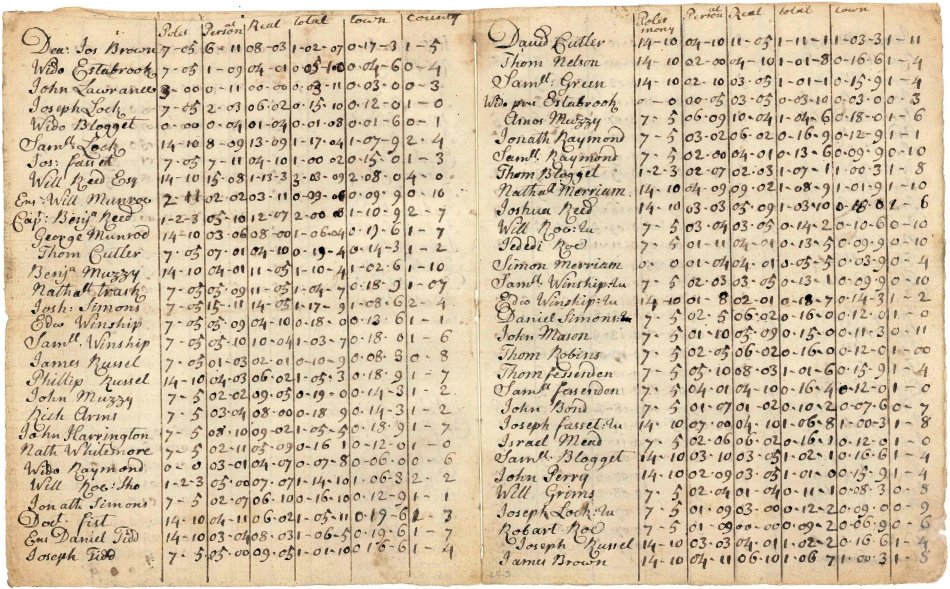 Poles Personal Real total town County
Dea: Jos Brown 7-05 6-11 08-03 1-02-07 0-17-3 1-5
Wido Estabrook 7-05 1-09 04-01 0-04-6 0-4
John Lawrance 3-00 0-11 00-00 0-03-11 0-03-0 0-3
Joseph Lock 7-05 2-03 06-02 0-15-10 0-12-0 1-0
Wido Blogget 0-00 0-04 01-04 0-01-08 0-01-6 0-1
Samll Lock 14-10 8-09 13-09 1-17-04 1-07-9 2-4
Jos: fasset 7-05 7-11 04-10 1-00-02 0-15-0 1-3
Will Reed Esq 14-10 15-08 1-13-3 3-03-09 2-08-0 4-0
Ens: Will Munroe 2-11 02-02 03-11 0-09-0 0-09-9 0-10
Cap: Benja Reed 1-2-3 05-10 12-07 2-00-8 1-10-9 2-7
George Munrod 14-10 03-06 08-00 1-06-04 0-19-6 1-7
Thom Cutler 7-05 07-01 04-10 0-19-4 0-14-3 1-2
Benja Muzzy 14-10 04-01 11-05 1-10-4 1-02-6 1-10
Nathall trask 7-05 05-09 11-05 1-04-7 0-18-9 1-07
Josh: Simons 7-05 15-11 14-05 1-17-9 1-08-6 2-4
Edw Winship 7-05 05-09 04-10 0-18-0 0-13-6 1-1
Samll Winship 7-05 05-10 10-04 1-03-7 0-18-0 1-6
James Russel 7-05 01-03 02-01 0-10-9 0-08-3 0-8
Phillip Russel 14-10 04-03 06-02 1-05-3 0-18-9 1-7
John Muzzy 7-5 02-02 09-05 0-19-0 0-14-3 1-2
Rich Arms 7-5 03-04 08-00 0-18-9 0-14-3 1-2
John Harrington 7-5 08-10 09-02 1-05-5 0-18-9 1-7
Nath Whitemore 7-5 02-11 05-09 0-16-1 0-12-0 1-0
Wido Raymond 0-0 03-01 04-07 0-07-8 0-06-0 0-6
Will Roe: Sho 1-2-3 05-00 07-07 1-14-10 1-06-3 2-2
Jonath Simons 7-5 02-07 06-10 0-16-10 0-12-9 1-1
Doct: fist 14-10 04-11 06-02 1-05-11 0-19-6 1-3
Ens Daniel Tidd 14-10 03-04 08-03 1-06-5 0-19-6 1-7
Joseph Tidd 7-5 05-00 09-05 1-01-10 0-16-6 1-4
Poles mony Personal Real total town
David Cutler 14-10 04-10 11-05 1-11-1 1-03-3 1-11
Thom Nelson 14-10 02-00 04-10 1-01-8 0-16-6 1-4
Samll Green 14-10 02-10 03-05 1-01-1 0-15-9 1-4
Wido pru Estabrook 0-0 00-05 03-05 0-03-10 0-03-0 0-3
Amos Muzzy 7-5 06-09 10-04 1-04-6 0-18-0 1-6
Jonath Raymond 7-5 03-02 06-02 0-16-9 0-12-9 1-1
Samll Raymond 7-5 02-00 04-01 0-13-6 0-09-9 0-10
Thom Blogget 1-2-3 02-07 02-03 1-07-1 1-00-3 1-8
Nathall Merriam 14-10 04-09 09-02 1-08-9 1-01-9 1-10
Joshua Reed 14-10 03-03 05-09 1-03-10 1-6
Will Roe: Ju 7-5 03-04 03-05 0-14-2 0-10-6 0-10
Jeddi Roe 7-5 01-11 04-01 0-13-5 0-09-9 0-10
Simon Merriam 0-0 01-04 04-01 0-05-5 0-03-9 0-4
Samll Winship: Ju 7-5 02-03 03-05 0-13-1 0-09-9 0-10
Edw Winship: Ju 14-10 01-8 02-01 0-18-7 0-14-3 1-2
Daniel Simons: Ju 7-5 02-5 06-02 0-16-0 0-12-0 1-0
John Mason 7-5 01-10 05-09 0-15-0 0-11-3 0-11
Thom Robins 7-5 02-05 06-02 0-16-0 0-12-0 1-00
Thom fessenden 7-5 05-10 08-03 1-01-6 0-15-9 1-4
Samll fasenden 7-5 04-01 04-10 0-16-4 0-12-0 1-0
John Bond 7-5 01-07 01-02 0-10-2 0-07-6 0-7
Joseph fasset: Ju 14-10 07-00 04-10 1-06-8 1-00-3 1-8
Israel Mead 7-5 02-06 06-02 0-16-1 0-12-0 1-0
Samll Blogget 14-10 03-10 03-05 1-02-1 0-16-6 1-4
John Perry 14-10 02-09 03-05 1-01-0 0-15-9 1-4
Will Grims 7-5 02-04 01-04 0-11-1 0-08-3 0-8
Joseph Lock: Ju 7-5 01-09 03-00 0-12-2 0-09-0 0-9
Robart Roe 7-5 01-09 00-00 0-09-2 0-06-9 0-6
Joseph Russel 14-10 03-03 04-01 1-02-2 0-16-6 1-4
James Brown 14-10 04-11 06-10 1-06-7 1-00-3 1-8